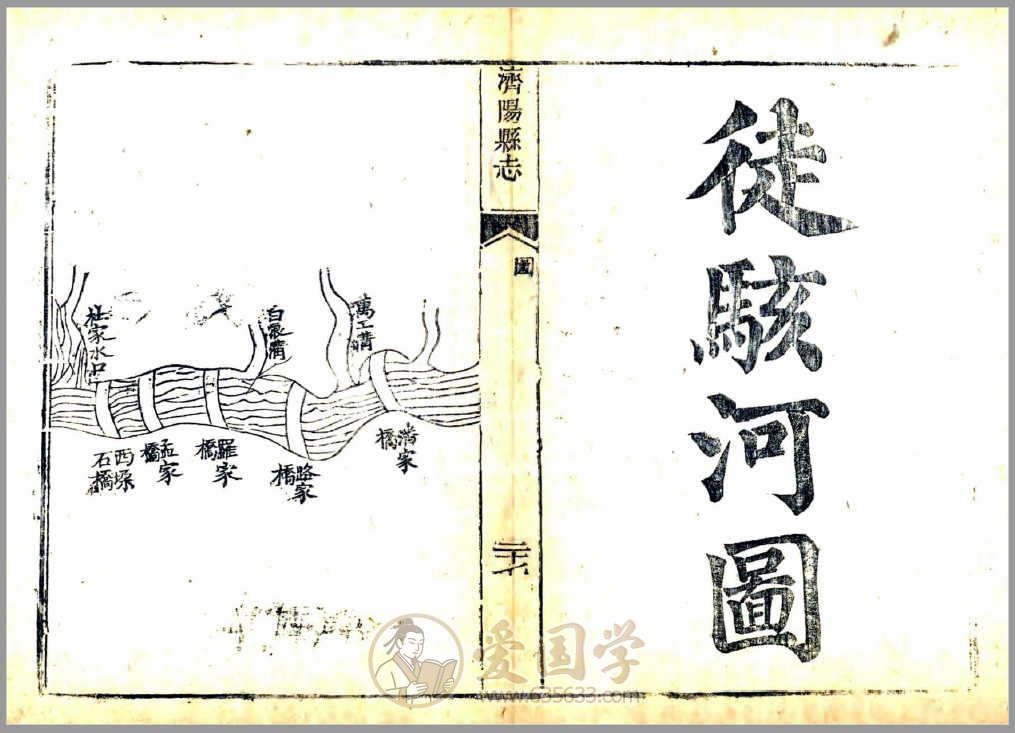 徒駭河圖
濟陽縣志
圖
萬工溝
家橋
路家橋
羅家橋
孟家橋
西
石橋
家水口
爱国学
www.635633.com